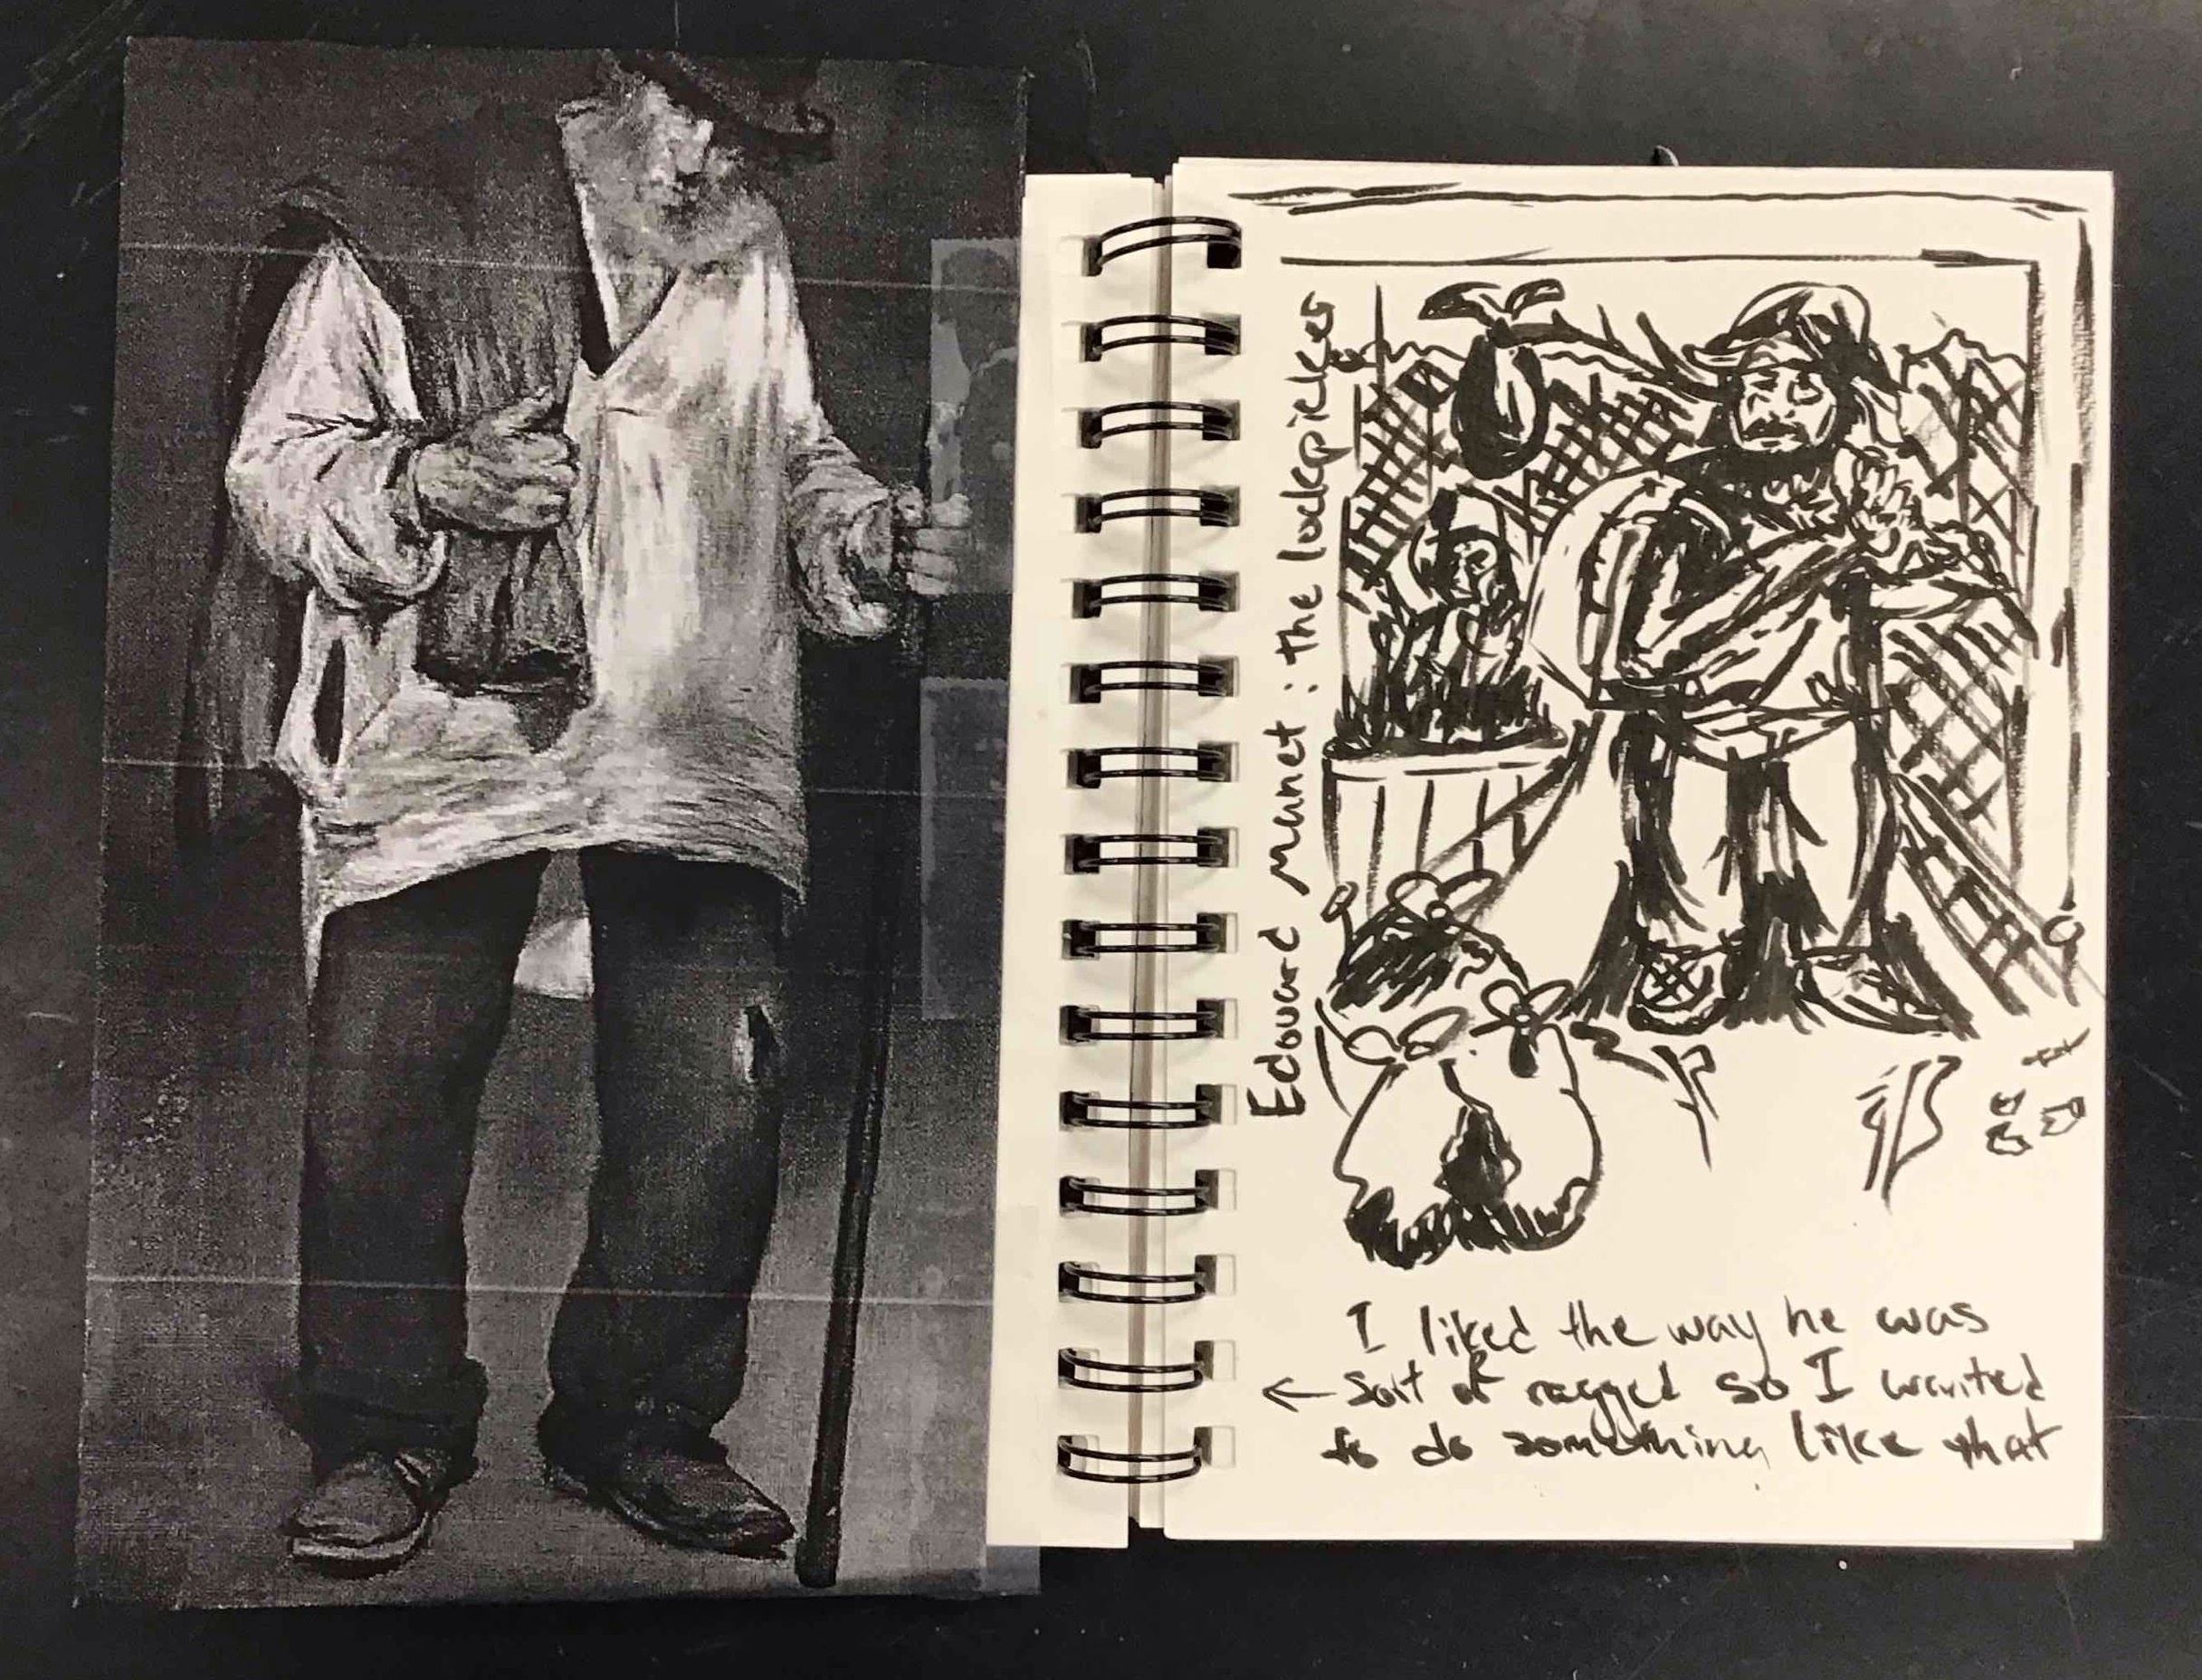 Edouard Manet : the lockpicker
I liked the way he was
← Sort of ragged so I wanted
to do something like that